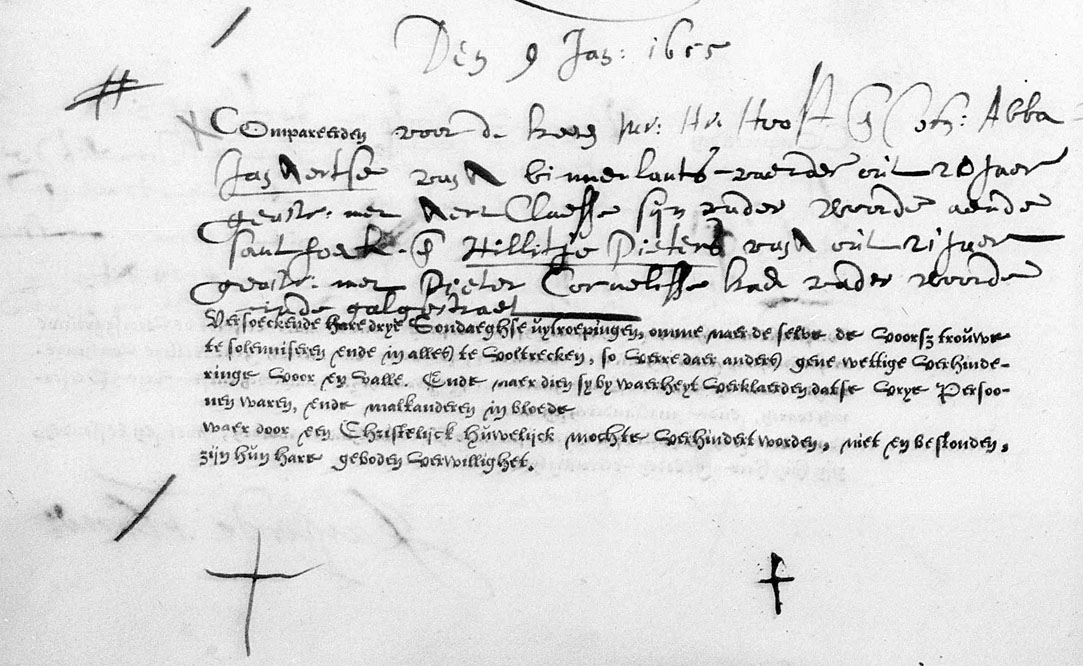 Den 9 Jan: 1655
Compareerden voor de heer pr: Hr: Hooft & Corn: Abba
Jan Aertse van A binnerlants-vaerder out 20 Jaer
geasst: met Aert Claesse sijn vader woonde aende
Sout hoek. & Hillitje Pieters van A out 21 Jaer
geasst: met Pieter Cornelisse haer vader woonde
inde galgestraet
Versoeckende hare drye Sondaeghse uytroepingen, omme naer de selve de voorsz trouwe
te solemniseren ende in alles te voltrecken, so verre daer anders gene wettige verhinde-
ringe voor en valle. Ende naer dien sy by waerheyt verklaerden datse vrye Persoo-
nen waren, ende malkanderen in bloede
waer door een Christelijck huwelijck mochte verhindert worden, niet en bestonden,
zijn hun hare geboden verwillighet.